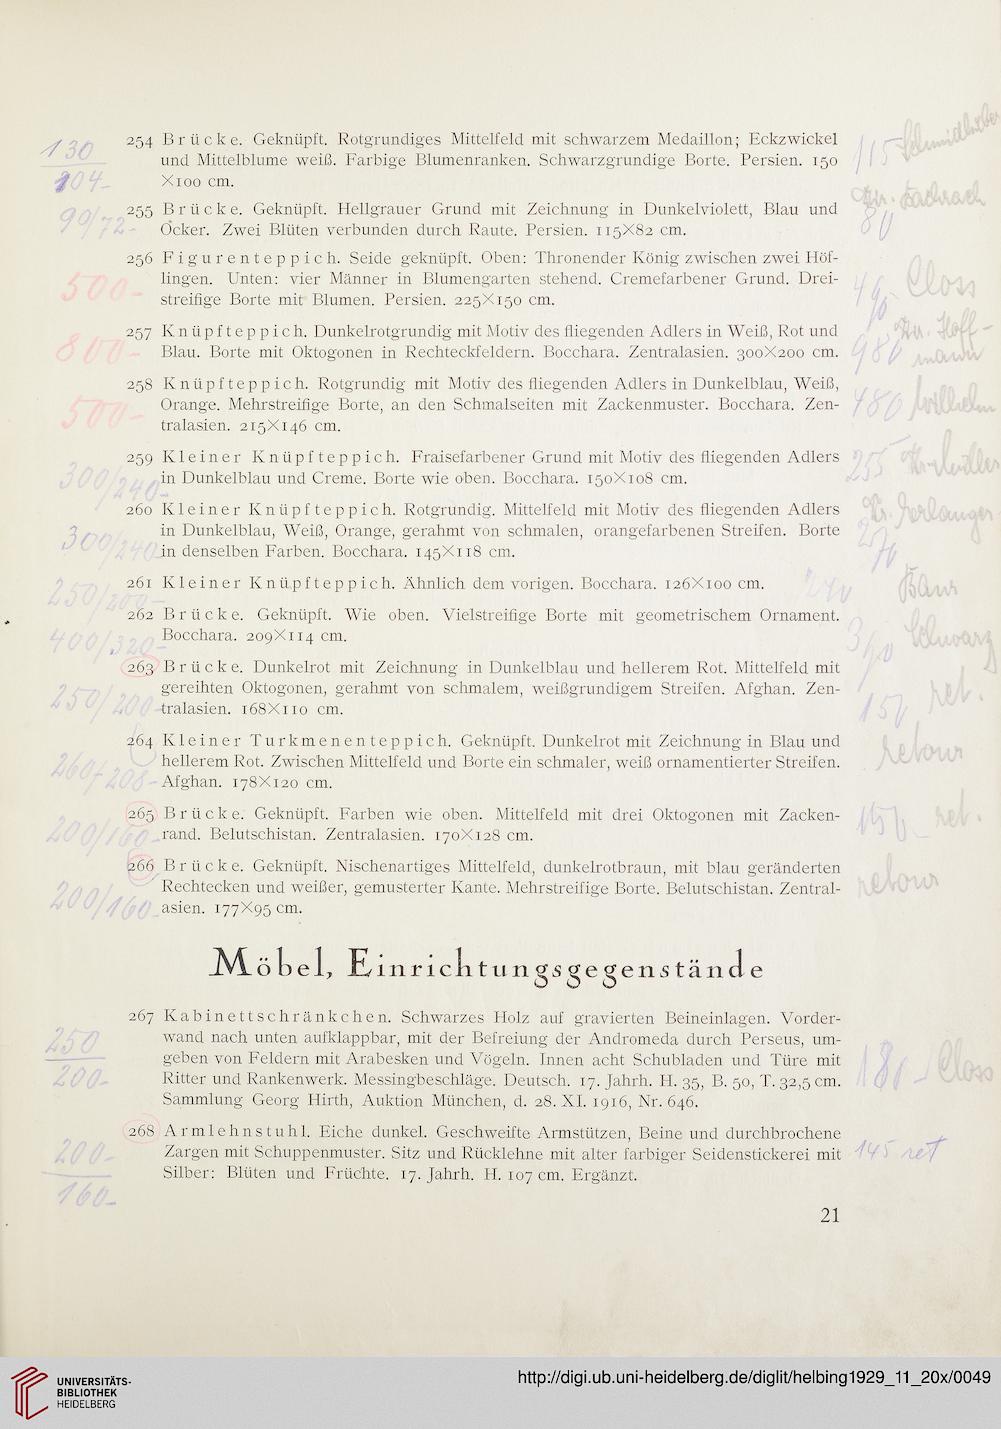 130
104-
254 Brücke. Geknüpft. Rotgrundiges Mittelfeld mit schwarzem Medaillon; Eckzwickel
und Mittelblume weiß. Farbige Blumenranken. Schwarzgrundige Borte. Persien. 150
×100 cm.
115
90/72-
255 Brücke. Geknüpft. Hellgrauer Grund mit Zeichnung in Dunkelviolett, Blau und
Ocker. Zwei Blüten verbunden durch Raute. Persien. 115×82 cm.
80
500-
256 Figurenteppich. Seide geknüpft. Oben: Thronender König zwischen zwei Höf-
lingen. Unten: vier Männer in Blumengarten stehend. Cremefarbener Grund. Drei-
streifige Borte mit Blumen. Persien. 225×150 cm.
Closs
800-
257 Knüpfteppich. Dunkelrotgrundig mit Motiv des fliegenden Adlers in Weiß, Rot und
Blau. Borte mit Oktogonen in Rechteckfeldern. Bocchara. Zentralasien. 300×200 cm.
980 Hoff-
mann
500-
258 Knüpfteppich. Rotgrundig mit Motiv des fliegenden Adlers in Dunkelblau, Weiß,
Orange. Mehrstreifige Borte, an den Schmalseiten mit Zackenmuster. Bocchara. Zen-
tralasien. 215×146 cm.
480 Wilhelm
300/240-
259 Kleiner Knüpfteppich. Fraisefarbener Grund mit Motiv des fliegenden Adlers
in Dunkelblau und Creme. Borte wie oben. Bocchara. 150×108 cm.
255
300/240-
260 Kleiner Knüpfteppich. Rotgrundig. Mittelfeld mit Motiv des fliegenden Adlers
in Dunkelblau, Weiß, Orange, gerahmt von schmalen, orangefarbenen Streifen. Borte
in denselben Farben. Bocchara. 145×118 cm.
270
250/200-
261 Kleiner Knüpfteppich. Ähnlich dem vorigen. Bocchara. 126×100 cm.
240 Baur
400/320-
262 Brücke. Geknüpft. Wie oben. Vielstreifige Borte mit geometrischem Ornament.
Bocchara. 209×114 cm.
Schwarz
250/200-
263 Brücke. Dunkelrot mit Zeichnung in Dunkelblau und hellerem Rot. Mittelfeld mit
gereihten Oktogonen, gerahmt von schmalem, weißgrundigem Streifen. Afghan. Zen-
tralasien. 168×110 cm.
150 ret.
260/208-
264 Kleiner Turkmenenteppich. Geknüpft. Dunkelrot mit Zeichnung in Blau und
hellerem Rot. Zwischen Mittelfeld und Borte ein schmaler, weiß ornamentierter Streifen.
Afghan. 178×120 cm.
retour
200/160-
265 Brücke. Geknüpft. Farben wie oben. Mittelfeld mit drei Oktogonen mit Zacken-
rand. Belutschistan. Zentralasien. 170×128 cm.
150 ret.
200/160-
266 Brücke. Geknüpft. Nischenartiges Mittelfeld, dunkelrotbraun, mit blau geränderten
Rechtecken und weißer, gemusterter Kante. Mehrstreifige Borte. Belutschistan. Zentral-
asien. 177×95 cm.
retour
Möbel, Einrichtungsgegenstände
250
200-
267 Kabinettschränkchen. Schwarzes Holz auf gravierten Beineinlagen. Vorder-
wand nach unten aufklappbar, mit der Befreiung der Andromeda durch Perseus, um-
geben von Feldern mit Arabesken und Vögeln. Innen acht Schubladen und Türe mit
Ritter und Rankenwerk. Messingbeschläge. Deutsch. 17. Jahrh. H. 35, B. 50, T. 32,5 cm.
Sammlung Georg Hirth, Auktion München, d. 28. XI. 1916, Nr. 646.
180- Closs
200-
160-
268 Armlehnstuhl. Eiche dunkel. Geschweifte Armstützen, Beine und durchbrochene
Zargen mit Schuppenmuster. Sitz und Rücklehne mit alter farbiger Seidenstickerei mit
Silber: Blüten und Früchte. 17. Jahrh. H. 107 cm. Ergänzt.
145 ret
21
UNIVERSITÄTS-
BIBLIOTHEK
HEIDELBERG
http://digi.ub.uni-heidelberg.de/diglit/helbing1929_11_20x/0049